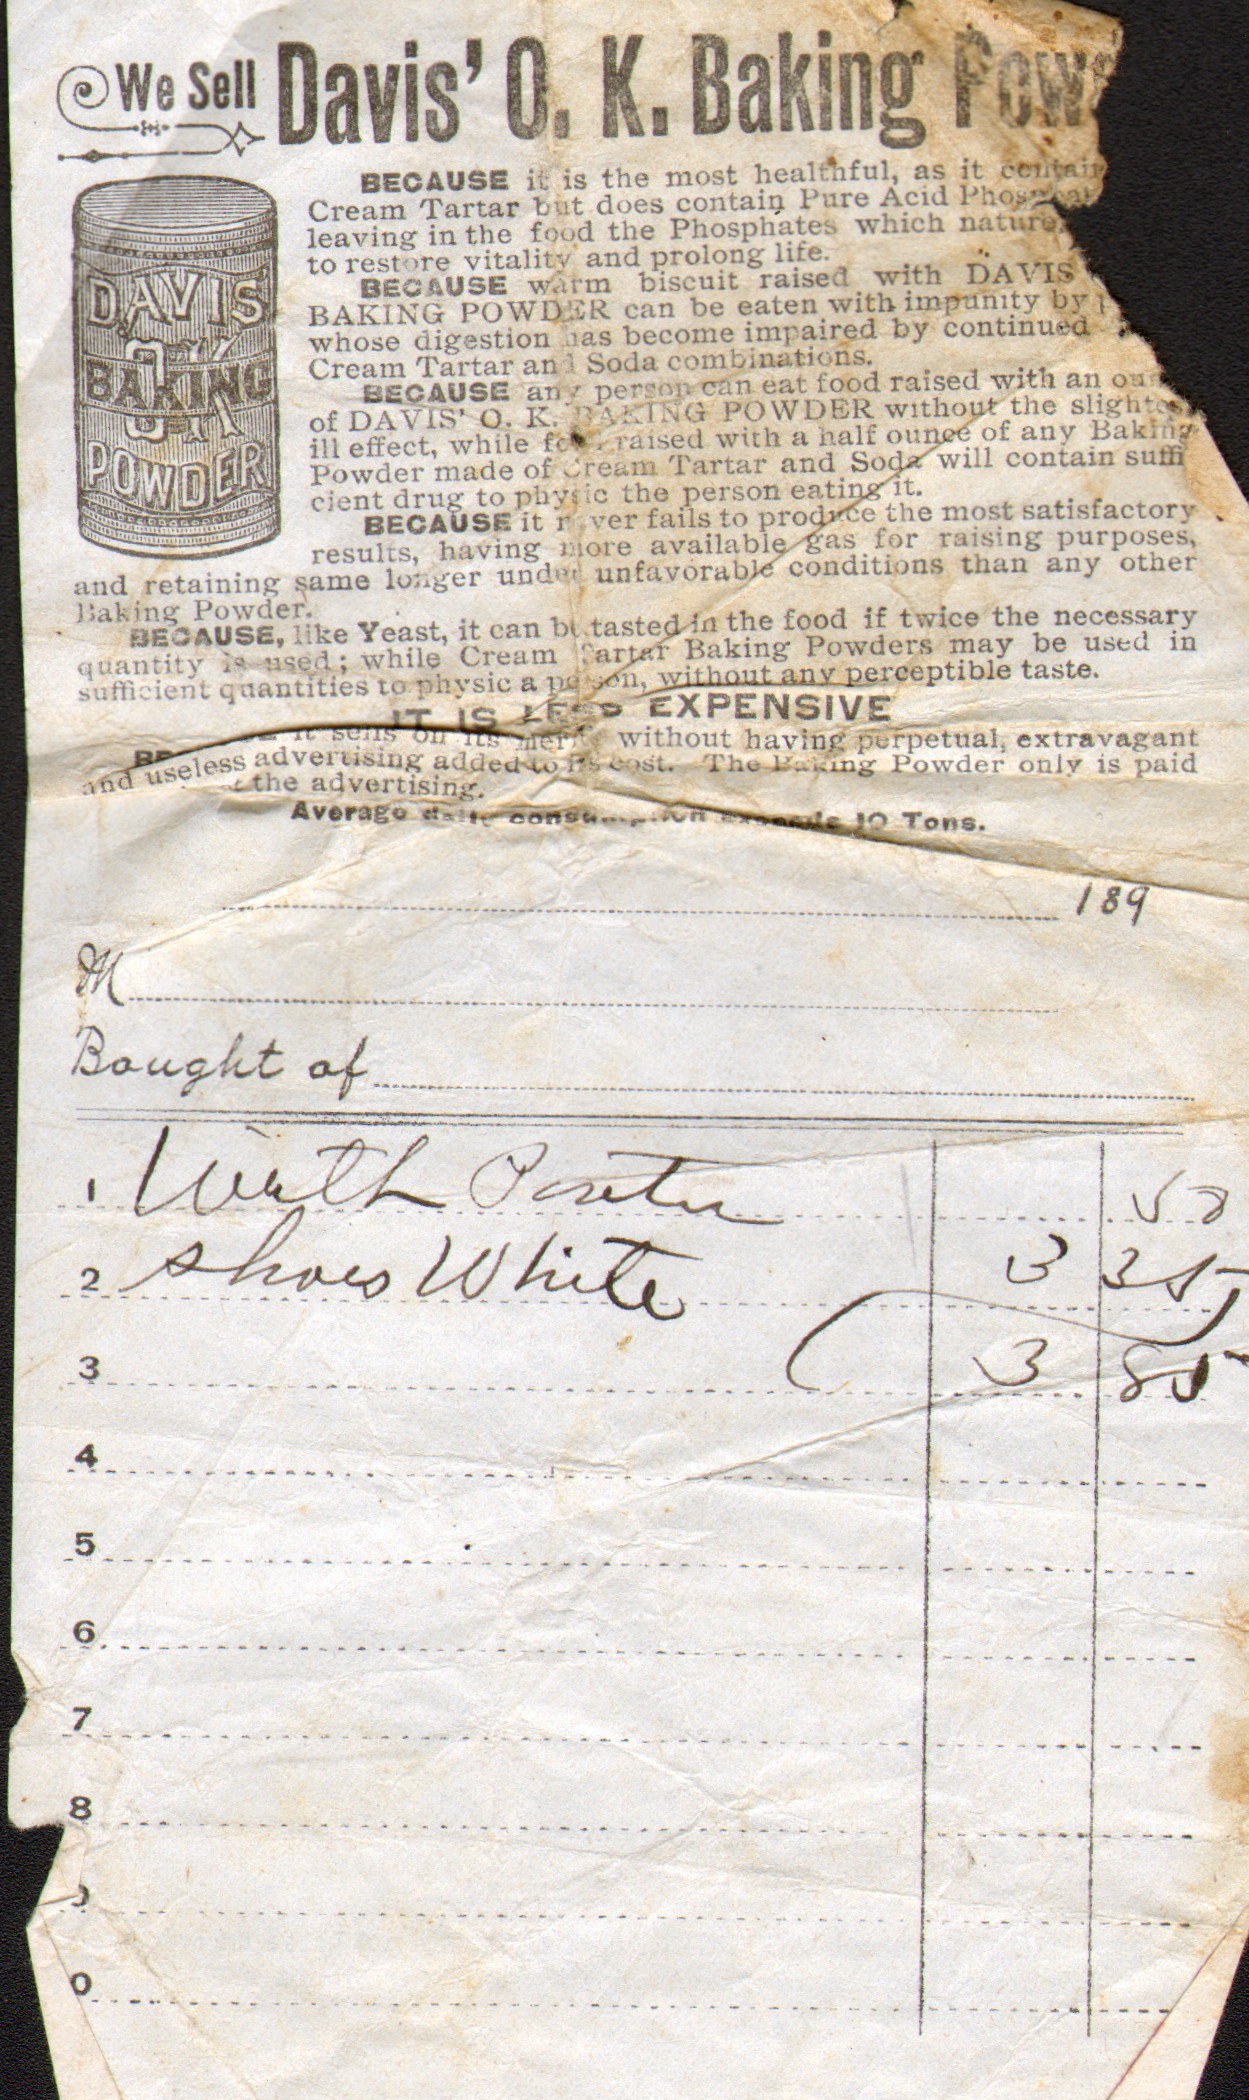 We Sell Davis' O. K. Baking Pow
BECAUSE it is the most healthful, as it contain
Cream Tartar but does contain Pure Acid
leaving in the food the Phosphates which nature
to restore vitality and prolong life.
BECAUSE warm biscuit raised with DAVIS
BAKING POWDER can be eaten with impunity by
whose digestion has become impaired by continued
Cream Tartar and Soda combinations.
BECAUSE any person can eat food raised with an
of DAVIS' O. K. BAKING POWDER without the slightest
ill effect, while raised with a half ounce of any Baking
Powder made of Cream Tartar and Soda will contain suffi
cient drug to physic the person eating it.
BECAUSE it never fails to produce the most satisfactory
results, having more available gas for raising purposes,
and retaining same longer under unfavorable conditions than any other
Baking Powder.
BECAUSE, like Yeast, it can be tasted in the food if twice the necessary
quantity is used; while Cream Tartar Baking Powders may be used in
sufficient quantities to physic a person, without any perceptible taste.
IT IS LESS EXPENSIVE
it sells on its merits without having perpetual, extravagant
and useless advertising added to its cost. The Baking Powder only is paid
the advertising.
Average daily consumption exceeds 10 Tons.
DAVIS'
OK
BAKING
POWDER
189
M
Bought of
1 50
2 Shoes White 3 35
3 3 85
4
5
6
7
8
0